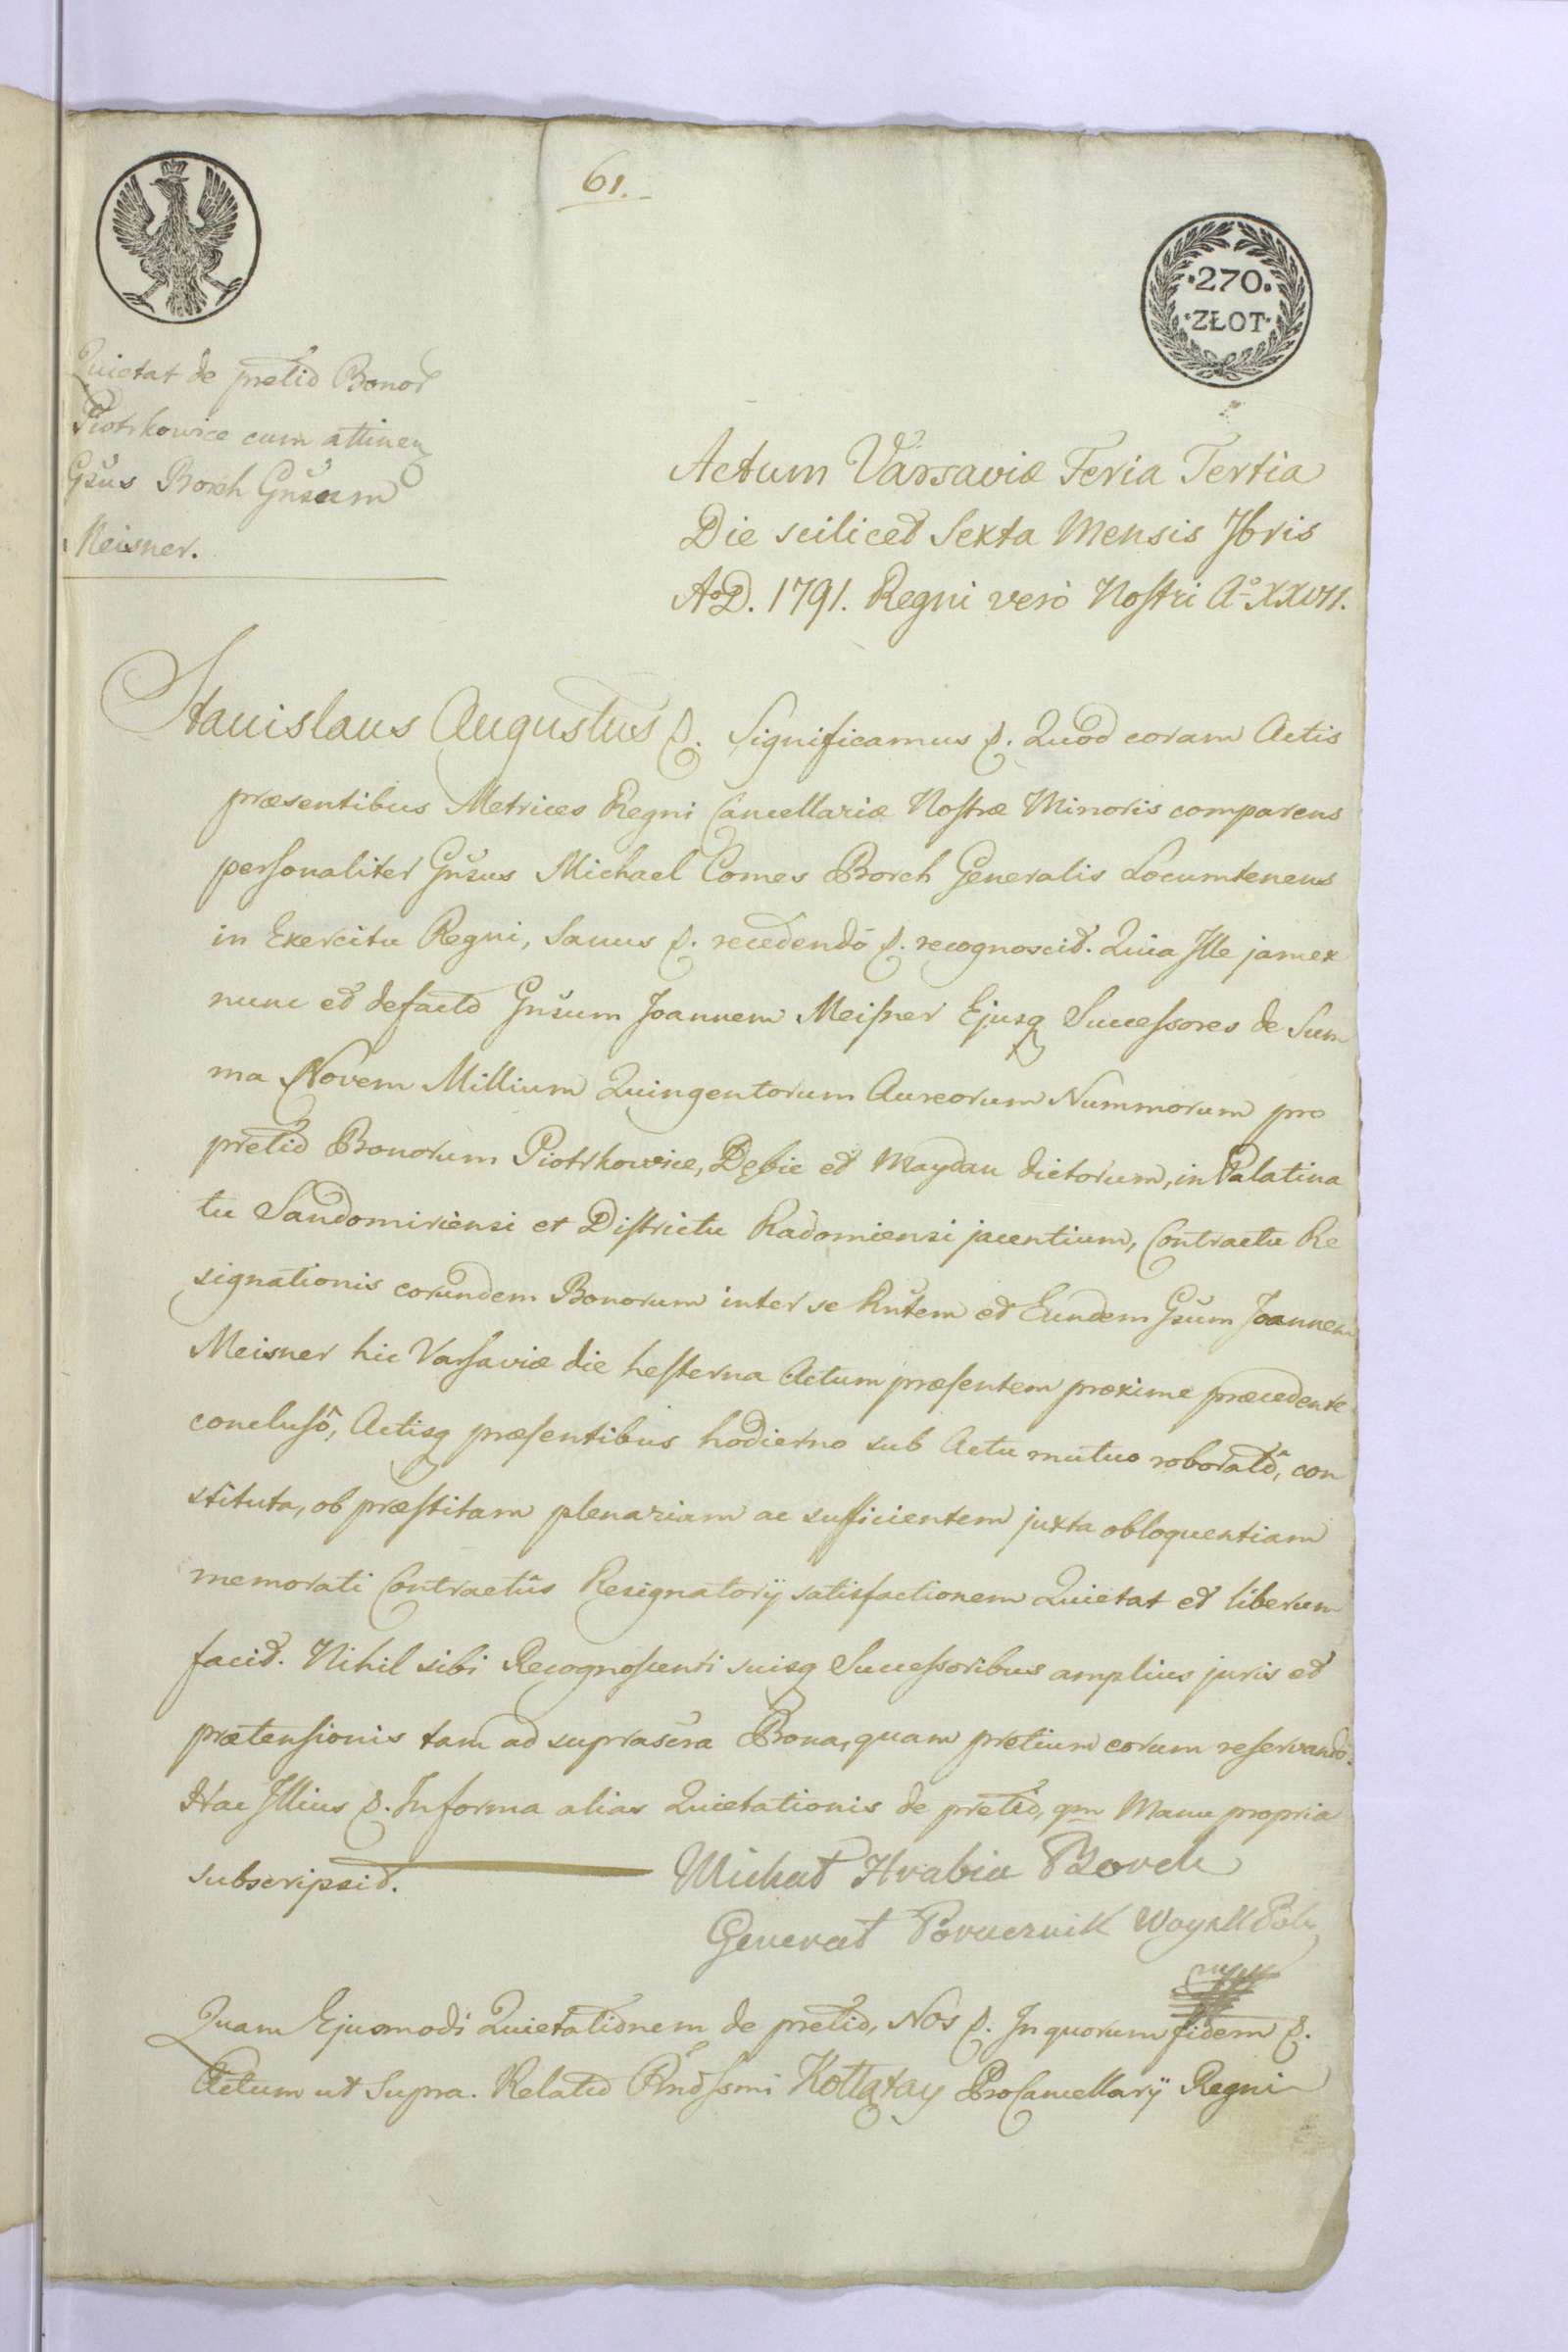 61.
·270·
·ZŁOT·
Quietat de pretio Bonor
Piotrkowice cum attinen
Gsus Borch Gnsum
Meisner.
Actum Varsaviæ Feria Tertia
Die scilicet Sexta Mensis 7bris
A°D. 1791. Regni verò Nostri A° XXVII.
Stanislaus Augustus &. Significamus &. Quod coram Actis
præsentibus Metrices Regni Cancellariæ Nostræ Minoris comparens
personaliter Gnsus Michael Comes Borch Generalis Locumtenens
in Exercitu Regni, Sanus &. recedendō &. recognoscit. Quia Ille jam ex
nunc et defacto Gnsum Joannem Meisner Ejusq Successores de Sum
ma Novem Millium Quingentorum Aureorum Nummorum pro
pretio Bonorum Piotrkowice, Dębie et Maydan dictorum, in Palatina
tu Sandomiriensi et Districtu Radomiensi jacentium, Contractu Re
signationis eorundem Bonorum inter se Rntem et Eundem Gsum Joannem
Meisner hic Varsaviæ die hesterna Actum præsentem proxime præcedente
conclusô, Actisq præsentibus hodierno sub Actu mutuo roboratô, con
stituta, ob præstitam plenariam ac sufficientem juxta obloquentiam
memorati Contractûs Resignatorij satisfactionem Quietat et liberum
facit. Nihil sibi Recognoscenti suisq Successoribus amplius juris et
prætensionis tam ad suprascra Bona, quam pretium eorum reservandō.
Hac Illius &. In forma alias Quietationis de pretio, qm Manu propria
subscripsit.
Michał Hrabia Borch
Generał Porucznik Woysk Pol
Quam Ejusmodi Quietationem de pretio, Nos &. In quorum fidem &.
Actum ut Supra. Relatio Rndssmi Kołłątay ProCancellarij Regni